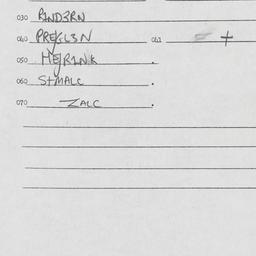 030 RIND3RN
040 PREGL3N 061 +
050 HEJRINK .
060 STMALC .
070 ZALC .